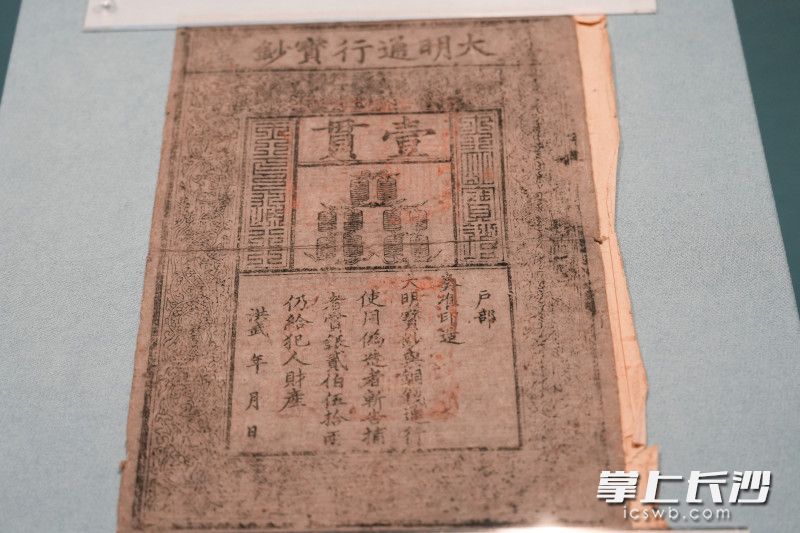 大明通行寶鈔
壹貫
大明寶鈔
天下通行
戶部
奏准印造
大明寶鈔與銅錢通行
使用偽造者斬告捕
者賞銀貳伯伍拾兩
仍給犯人財產
洪武 年 月 日
掌上长沙
icswb.com